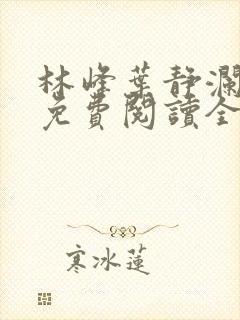 林峰葉靜瀾
免費閱讀全
寒冰蓮